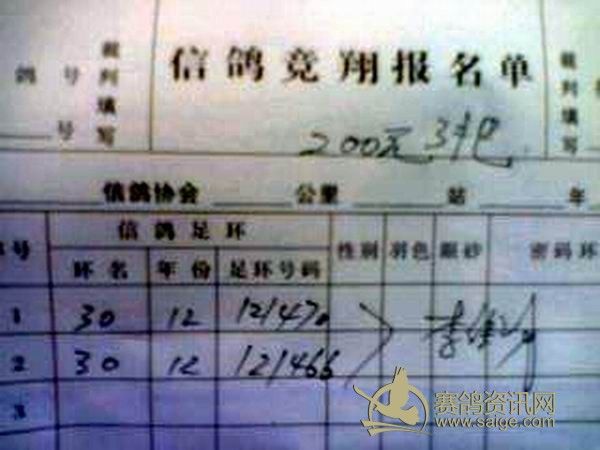 鸽 号 裁判填写 信鸽竞翔报名单 裁判填写
号 200元
信鸽协会 公里 站 年
号 信鸽足环 性别 羽色 眼砂 密码环
环名 年份 足环号码
1 30 12 121470
2 30 12 121466
3
赛鸽资讯网
www.saige.com